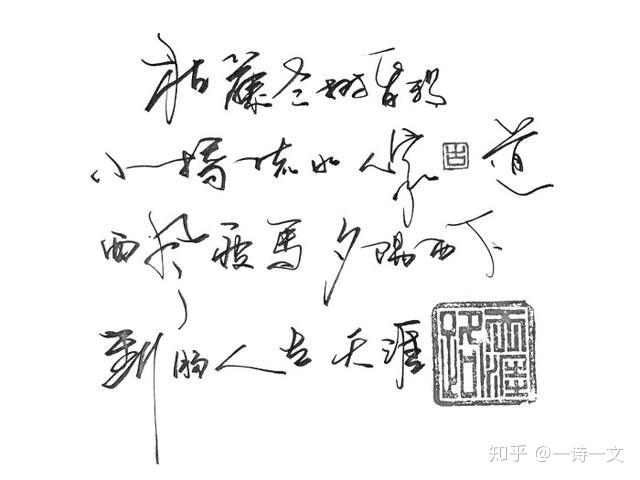 枯藤老树昏鸦
小桥流水人家古道
西风瘦馬夕陽西下
断肠人在天涯
知乎 @一诗一文